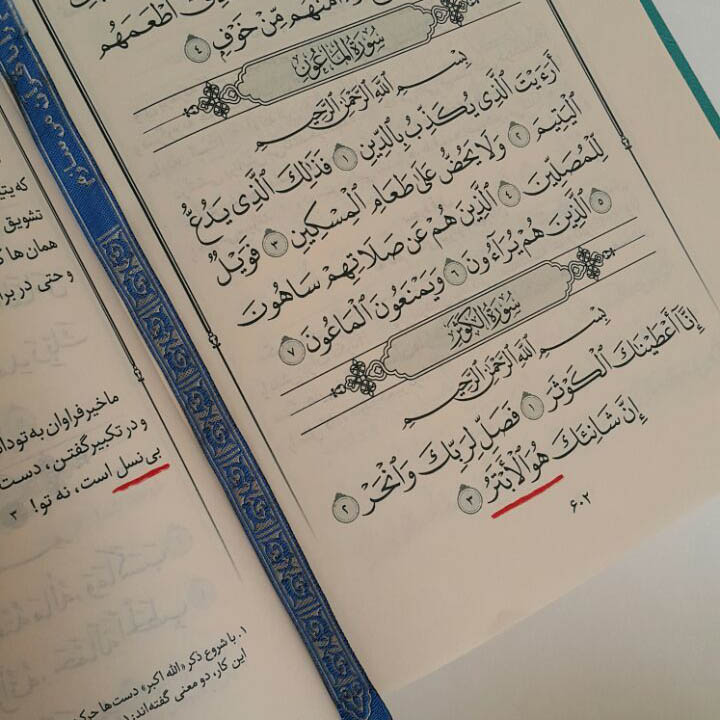 أَطْعَمَهُم
ءَامَنَهُم مِّنْ خَوْفٍ ٤
سُورَةُ المَاعُونِ
بِسْمِ اللَّهِ الرَّحْمَٰنِ الرَّحِيمِ
أَرَءَيْتَ الَّذِي يُكَذِّبُ بِالدِّينِ ١ فَذَٰلِكَ الَّذِي يَدُعُّ
الْيَتِيمَ ٢ وَلَا يَحُضُّ عَلَىٰ طَعَامِ الْمِسْكِينِ ٣ فَوَيْلٌ
لِّلْمُصَلِّينَ ٤ الَّذِينَ هُمْ عَن صَلَاتِهِمْ سَاهُونَ
٥ الَّذِينَ هُمْ يُرَآءُونَ ٦ وَيَمْنَعُونَ الْمَاعُونَ ٧
سُورَةُ الكَوْثَرِ
بِسْمِ اللَّهِ الرَّحْمَٰنِ الرَّحِيمِ
إِنَّآ أَعْطَيْنَاكَ الْكَوْثَرَ ١ فَصَلِّ لِرَبِّكَ وَانْحَرْ ٢
إِنَّ شَانِئَكَ هُوَ الْأَبْتَرُ ٣
٦٠٢
تشویق
همان‌ها
و حتی در
ما خیر فراوان به تو
و در تکبیر گفتن، دست
بی‌نسل است، نه تو! ٣
١. با شروع ذکر «الله اکبر» دست‌ها
این کار، دو معنی گفته‌اند: